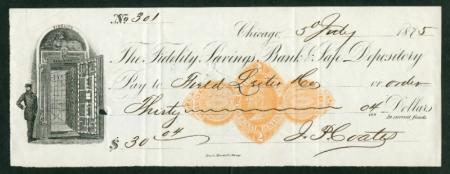 No. 301
Chicago, 5 July 1875
The Fidelity Savings Bank & Safe Depository
Pay to or order
Thirty 04/100 Dollars
In current funds
$ 30 04 J. P. Coates